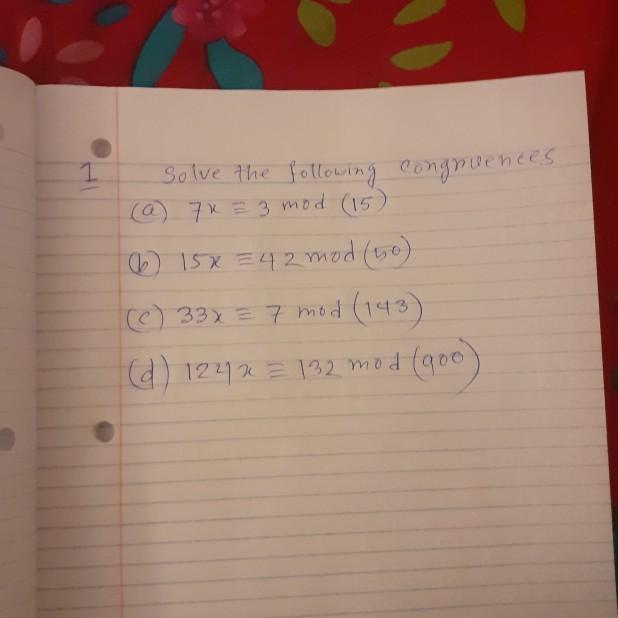 1 Solve the following congruences
(a) 7x ≡ 3 mod (15)
(b) 15x ≡ 42 mod (50)
(c) 33x ≡ 7 mod (143)
(d) 124x ≡ 132 mod (900)